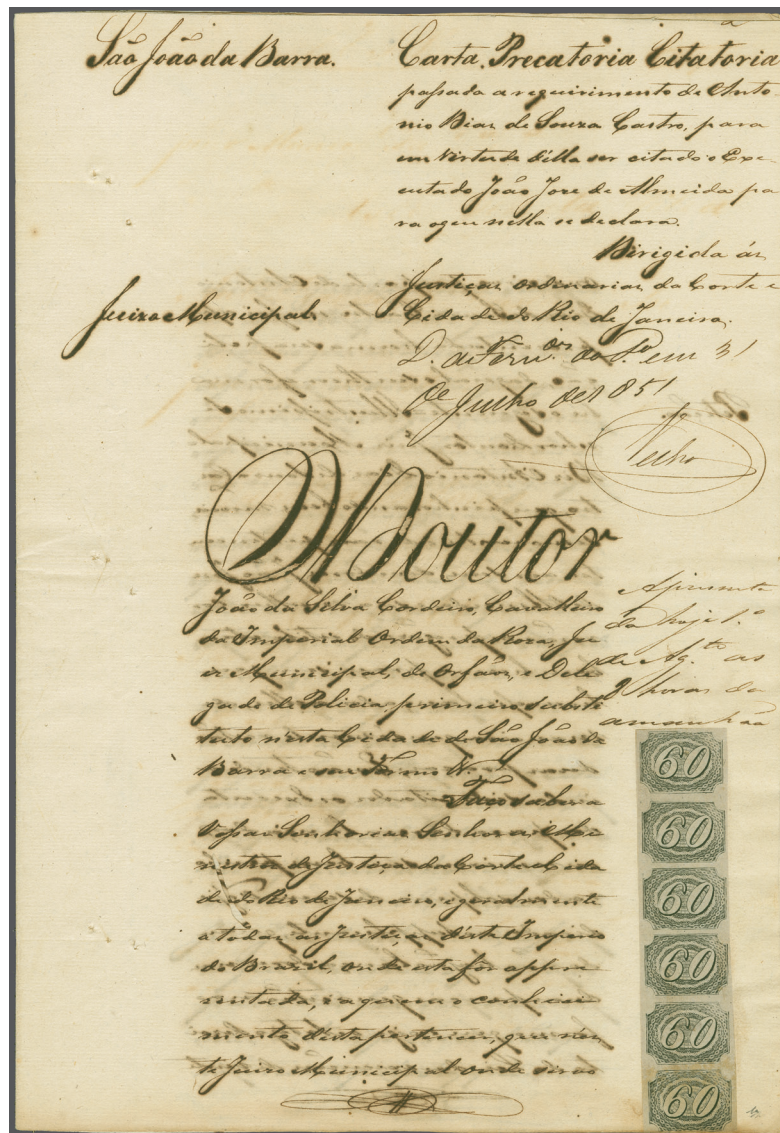 São João da Barra.
Carta Precatoria Citatoria
passada a requirimento de Anto
nio Dias de Souza Castro, para
em virtude d'ella ser citado o Exe
cutado João Jose de Almeida pa
ra o que nella se declara.
Dirigida ás
Justiças ordinarias da Corte e
Cidade do Rio de Janeiro.
Juizo Municipal
D. em 31
de Julho de 1851
O Doutor
João da Silva Cordeiro, Cavalleiro
da Imperial Ordem da Roza, Ju
iz Municipal, de Orfãos, e Dele
gado de Policia primeiro substi
tuto n'esta Cidade de São João da
Barra e seu Termo &.
Faço saber a
Vossas Senhorias Senhores Mi
nistros de Justiça da Corte e Cida
de do Rio de Janeiro, e geralmente
a todas as Justiças d'este Imperio
do Brazil, onde esta for appre
sentada, e a quem o conheci
mento d'esta pertencer, que n'es
te Juizo Municipal onde sirvo
Apresenta
da hoje 1.º
de Ag.to as
9 horas da
amanhãa
60
60
60
60
60
60